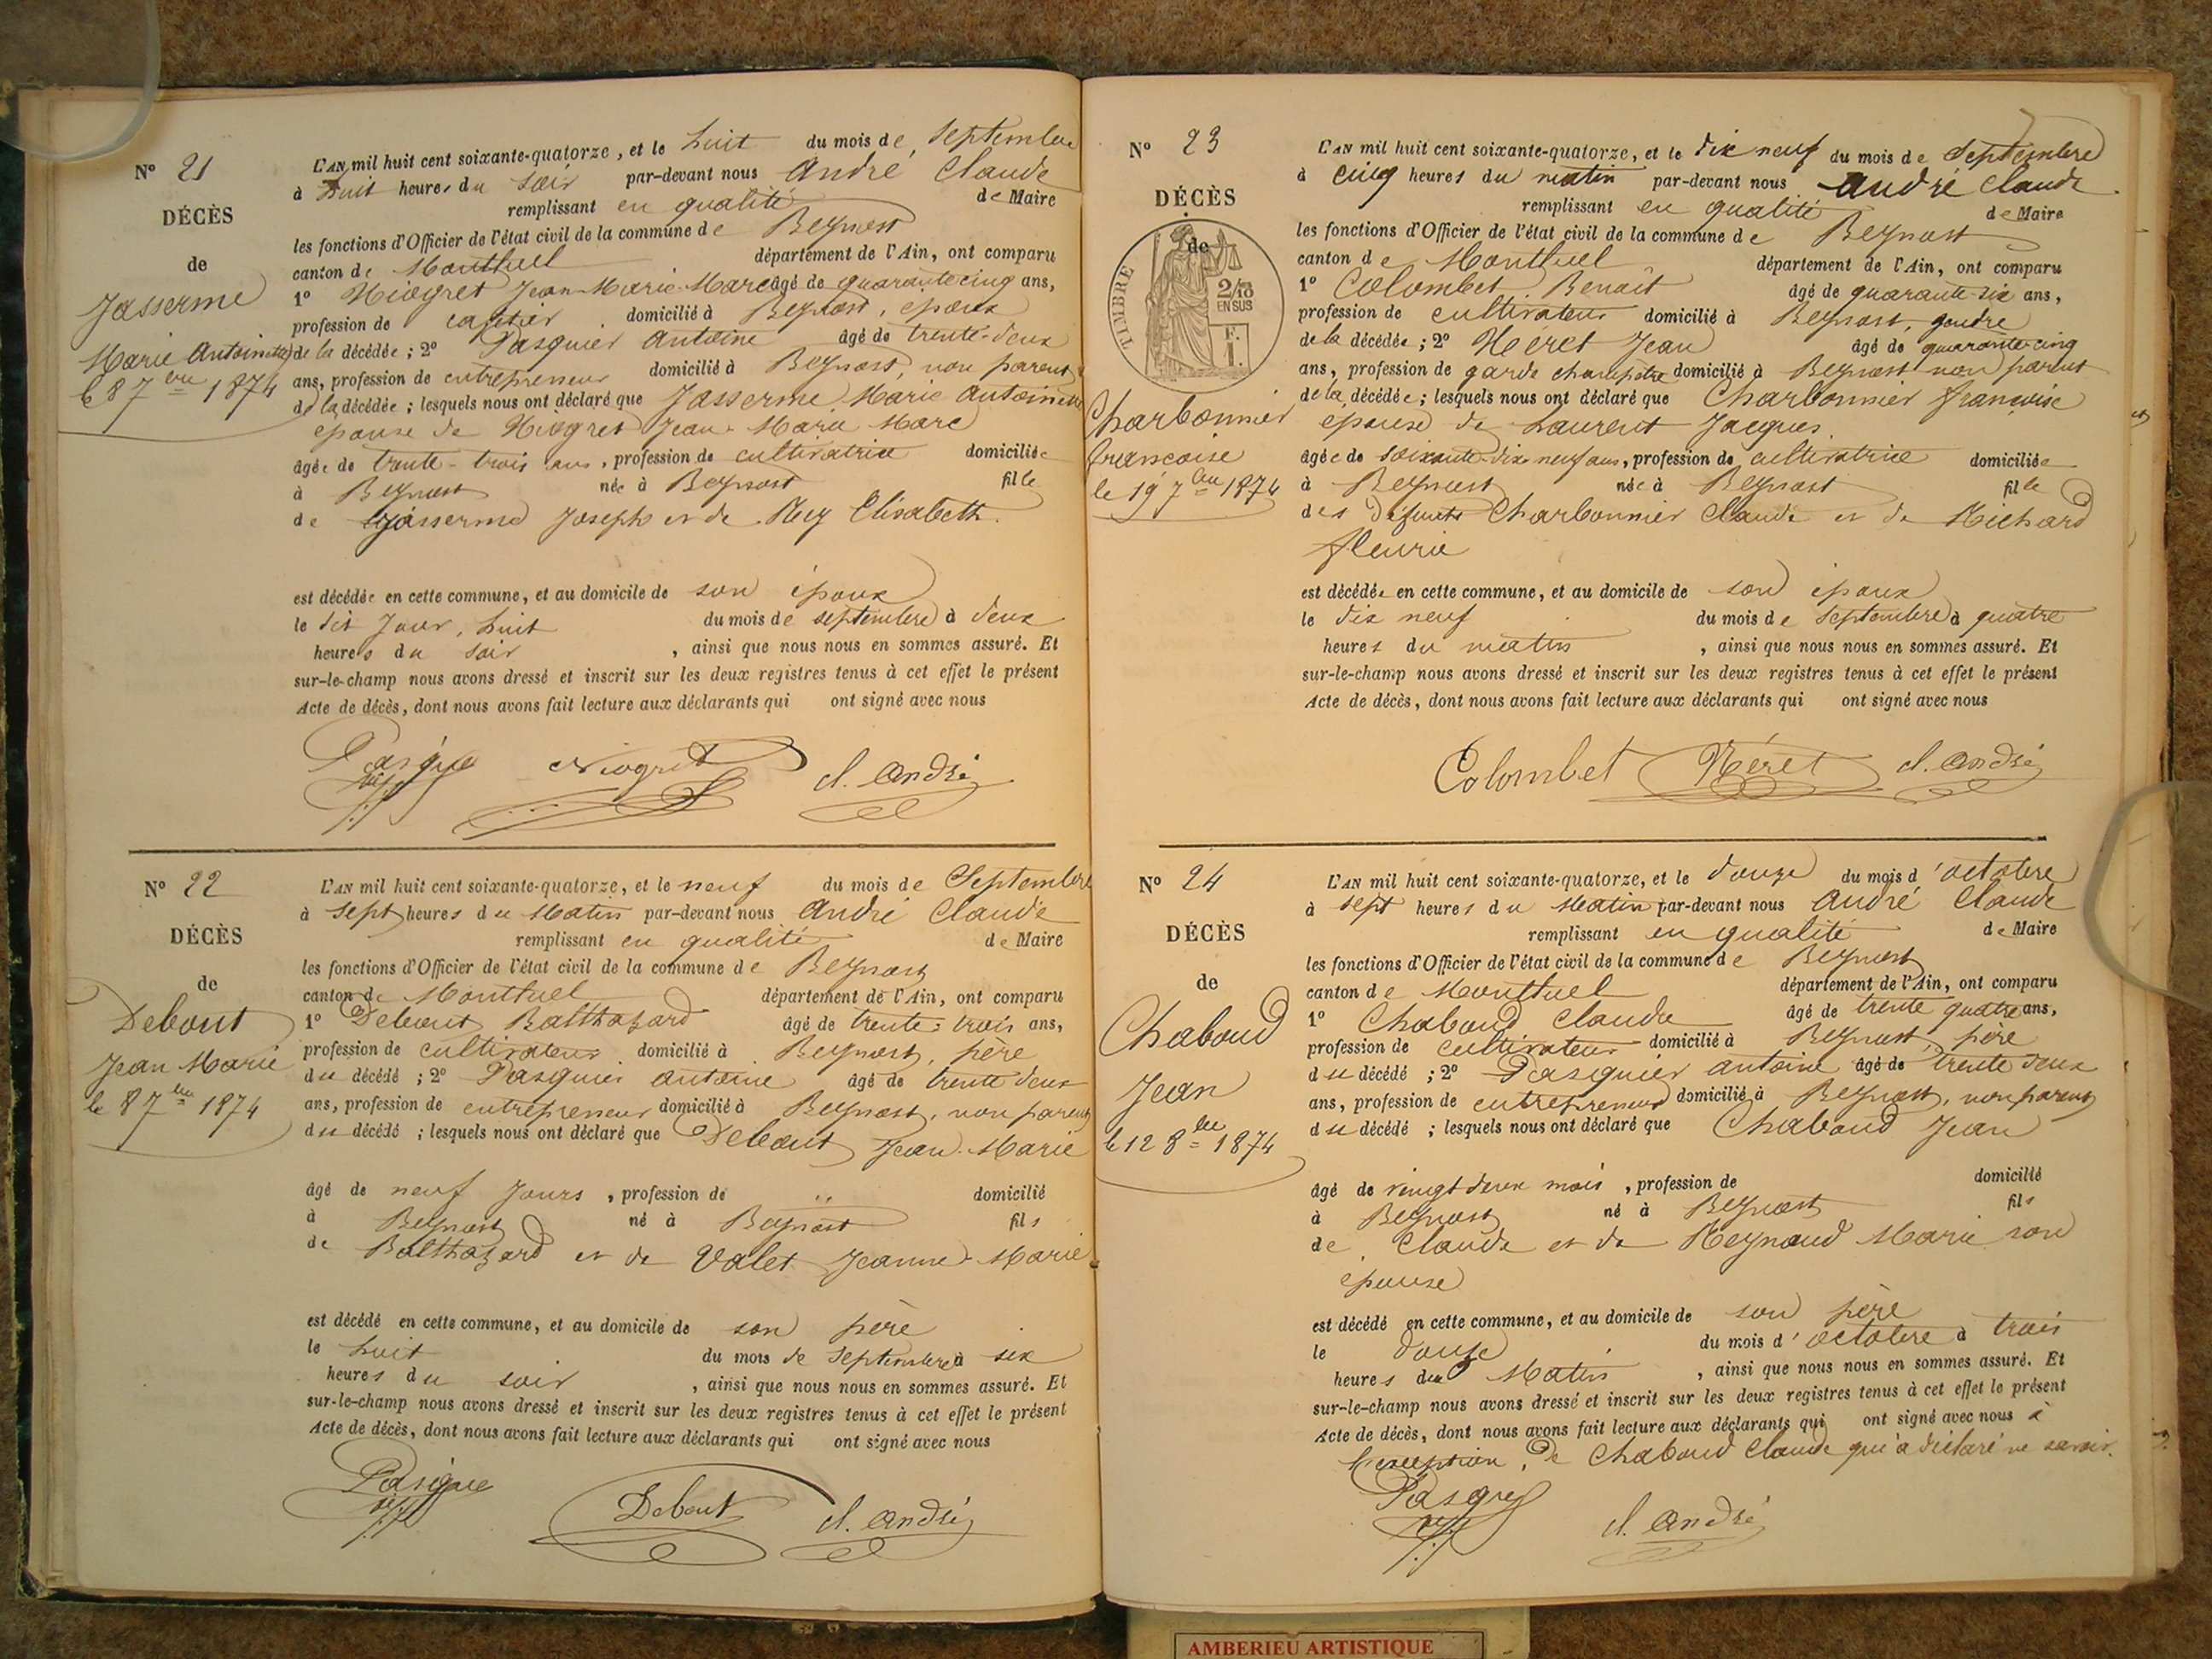 N° 21
DÉCÈS
de
Jasserme
Marie Antoinette
le 8 7bre 1874
L'AN mil huit cent soixante-quatorze, et le huit du mois de Septembre
à huit heures du soir par-devant nous André Claude
remplissant en qualité de Maire
les fonctions d'Officier de l'état civil de la commune de Beynost
canton de Montluel département de l'Ain, ont comparu
1° Niogret Jean-Marie-Marc âgé de quarante cinq ans,
profession de domicilié à Beynost, époux
de la décédée ; 2° Pasquier Antoine âgé de trente-deux
ans, profession de entrepreneur domicilié à Beynost, non parent
de la décédée ; lesquels nous ont déclaré que Jasserme Marie Antoinette
épouse de Niogret Jean-Marie Marc
âgée de trente-trois ans, profession de cultivatrice domiciliée
à Beynost née à Beynost fille
de Jasserme Joseph et de Elisabeth.
est décédée en cette commune, et au domicile de son époux
le dit jour, huit du mois de septembre à deux
heures du soir, ainsi que nous nous en sommes assuré. Et
sur-le-champ nous avons dressé et inscrit sur les deux registres tenus à cet effet le présent
Acte de décès, dont nous avons fait lecture aux déclarants qui ont signé avec nous
Pasquier Niogret Cl. André
N° 22
DÉCÈS
de
Debout
Jean Marie
le 8 7bre 1874
L'AN mil huit cent soixante-quatorze, et le neuf du mois de Septembre
à sept heures du Matin par-devant nous André Claude
remplissant en qualité de Maire
les fonctions d'Officier de l'état civil de la commune de Beynost
canton de Montluel département de l'Ain, ont comparu
1° Debout Balthazard âgé de trente-trois ans,
profession de cultivateur domicilié à Beynost, père
du décédé ; 2° Pasquier Antoine âgé de trente deux
ans, profession de entrepreneur domicilié à Beynost, non parent
du décédé ; lesquels nous ont déclaré que Debout Jean-Marie
âgé de neuf jours, profession de .. domicilié
à Beynost né à Beynost fils
de Balthazard et de Valet Jeanne-Marie
est décédé en cette commune, et au domicile de son père
le huit du mois de Septembre à six
heures du soir, ainsi que nous nous en sommes assuré. Et
sur-le-champ nous avons dressé et inscrit sur les deux registres tenus à cet effet le présent
Acte de décès, dont nous avons fait lecture aux déclarants qui ont signé avec nous
Pasquier Debout Cl. André
N° 23
DÉCÈS
de
TIMBRE
2/10
EN SUS
F.
1.
Charbonnier
Françoise
le 19 7bre 1874
L'AN mil huit cent soixante-quatorze, et le dix neuf du mois de Septembre
à cinq heures du matin par-devant nous André Claude
remplissant en qualité de Maire
les fonctions d'Officier de l'état civil de la commune de Beynost
canton de Montluel département de l'Ain, ont comparu
1° Colombet Benoît âgé de quarante-six ans,
profession de cultivateur domicilié à Beynost, gendre
de la décédée ; 2° Néret Jean âgé de quarante-cinq
ans, profession de garde champêtre domicilié à Beynost non parent
de la décédée ; lesquels nous ont déclaré que Charbonnier Françoise
épouse de Laurent Jacques
âgée de soixante-dix-neuf ans, profession de cultivatrice domiciliée
à Beynost née à Beynost fille
des défunts Charbonnier Claude et de Michard
Fleurie
est décédée en cette commune, et au domicile de son époux
le dix neuf du mois de Septembre à quatre
heures du matin, ainsi que nous nous en sommes assuré. Et
sur-le-champ nous avons dressé et inscrit sur les deux registres tenus à cet effet le présent
Acte de décès, dont nous avons fait lecture aux déclarants qui ont signé avec nous
Colombet Néret Cl. André
N° 24
DÉCÈS
de
Chaboud
Jean
le 12 8bre 1874
L'AN mil huit cent soixante-quatorze, et le douze du mois d'octobre
à sept heures du Matin par-devant nous André Claude
remplissant en qualité de Maire
les fonctions d'Officier de l'état civil de la commune de Beynost
canton de Montluel département de l'Ain, ont comparu
1° Chaboud Claude âgé de trente quatre ans,
profession de cultivateur domicilié à Beynost, père
du décédé ; 2° Pasquier Antoine âgé de trente deux
ans, profession de entrepreneur domicilié à Beynost, non parent
du décédé ; lesquels nous ont déclaré que Chaboud Jean
âgé de vingt deux mois, profession de domicilié
à Beynost né à Beynost fils
de Claude et de Reynaud Marie son
épouse
est décédé en cette commune, et au domicile de son père
le douze du mois d'octobre à trois
heures du Matin, ainsi que nous nous en sommes assuré. Et
sur-le-champ nous avons dressé et inscrit sur les deux registres tenus à cet effet le présent
Acte de décès, dont nous avons fait lecture aux déclarants qui ont signé avec nous à
l'exception de Chaboud Claude qui a déclaré ne savoir.
Pasquier Cl. André
AMBERIEU ARTISTIQUE